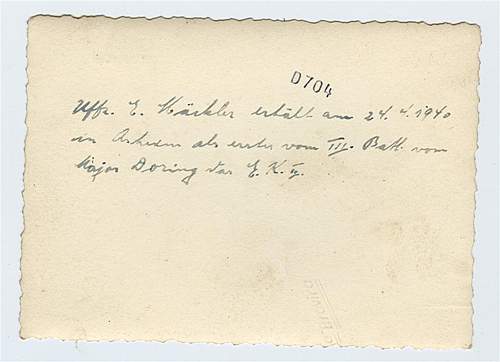 D704
Uffz. E. Mäckler erhält am 24. 4. 1940
in als erster vom III. Batl. vom
Major Döring das E. K. II.